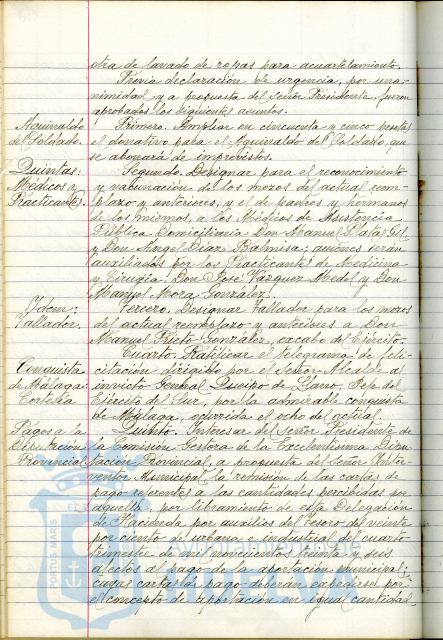 otra de lavado de ropas para acuartelamiento.
Previa declaración de urgencia, por una-
nimidad y a propuesta del Señor Presidente, fueron
aprobados los siguientes asuntos.
Aguinaldo
del Soldado.
Primero. Ampliar en cincuenta y cinco pesetas
el donativo para el Aguinaldo del Soldado, que
se abonará de imprevistos.
Quintas:
Médicos y
Practicantes.
Segundo. Designar para el reconocimiento
y vacunación de los mozos del actual reem-
plazo y anteriores, y el de padres y hermanos
de los mismos, a los Médicos de Asistencia
Pública Domiciliaria Don Manuel Salas Gil
y Don Angel Diaz Balmisa; quiénes serán
auxiliados por los Practicantes de Medicina
y Cirugía, Don José Vázquez Medel y Don
Manuel Mora González.
Idem:
Tallador.
Tercero. Designar Tallador para los mozos
del actual reemplazo y anteriores a Don
Manuel Prieto González, excabo del Ejército.
Conquista
de Málaga:
Cortesía
Cuarto. Ratificar el telegrama de feli-
citación dirigido por el Señor Alcalde al
invicto General Queipo de Llano, Jefe del
Ejército del Sur, por la admirable conquista
de Málaga, ocurrida el ocho del actual.
Pagos a la
Diputación
Provincial
Quinto. Interesar del Señor Presidente de
la Comisión Gestora de la Excelentísima Dipu-
tación Provincial, a propuesta del Señor Inter-
ventor Municipal, la remisión de las cartas de
pago referentes a las cantidades percibidas por
aquella, por libramiento de esta Delegación
de Hacienda por auxilios del Tesoro del veinte
por ciento de urbana e industrial del cuarto
trimestre de mil novecientos treinta y seis
afectos al pago de la aportación municipal;
cuyas cartas de pago deberán expedirse por
el concepto de aportación en igual cantidad
PORTUS MARIS